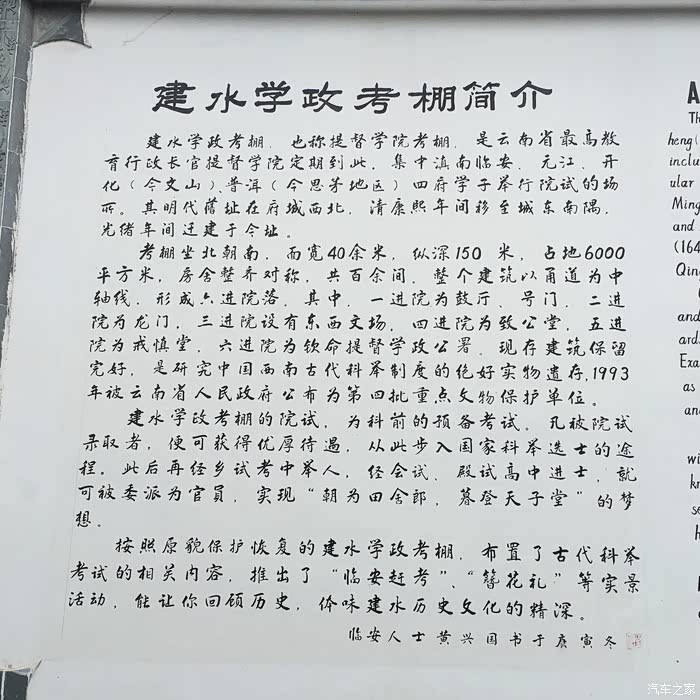 建水学政考棚简介
建水学政考棚，也称提督学院考棚，是云南省最高教
育行政长官提督学院定期到此，集中滇南临安、元江、开
化（今文山）、普洱（今思茅地区）四府学子举行院试的场
所。其明代旧址在府城西北，清康熙年间移至城东南隅，
光绪年间迁建于今址。
考棚坐北朝南，面宽40余米，纵深150米，占地6000
平方米，房舍整齐对称，共百余间，整个建筑以甬道为中
轴线，形成六进院落，其中，一进院为鼓厅、号门，二进
院为龙门，三进院设有东西文场，四进院为致公堂，五进
院为戒慎堂，六进院为钦命提督学政公署，现存建筑保留
完好，是研究中国西南古代科举制度的绝好实物遗存，1993
年被云南省人民政府公布为第四批重点文物保护单位。
建水学政考棚的院试，为科前的预备考试，凡被院试
录取者，便可获得优厚待遇，从此步入国家科举选士的途
程。此后再经乡试考中举人，经会试、殿试高中进士，就
可被委派为官员，实现“朝为田舍郎，暮登天子堂”的梦
想。
按照原貌保护恢复的建水学政考棚，布置了古代科举
考试的相关内容，推出了“临安赶考”、“簪花礼”等实景
活动，能让你回顾历史，体味建水历史文化的精深。
临安人士黄兴国书于庚寅冬
A
Th
heng(
inclu
ular
Ming
and
(164
Qing
and
ards
Exa
as
an
wi
kn
se
h
汽车之家